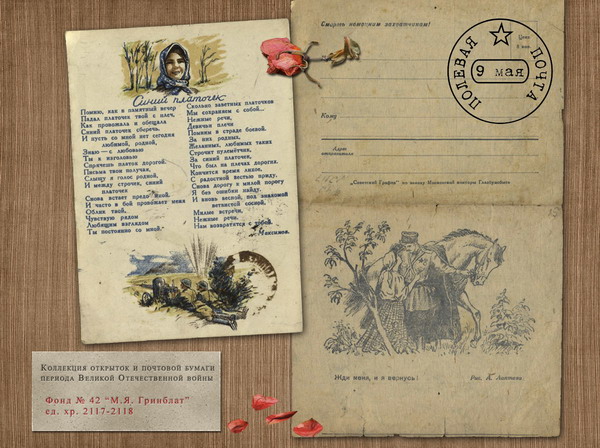 Синий платочек
Помню, как в памятный вечер
Падал платочек твой с плеч,
Как провожала и обещала
Синий платочек сберечь.
И пусть со мной нет сегодня
любимой, родной,
Знаю — с любовью
Ты к изголовью
Спрячешь платок дорогой.
Письма твои получая,
Слышу я голос родной,
И между строчек, синий
платочек
Снова встает предо мной.
И часто в бой провожает меня
Облик твой,
Чувствую рядом
Любящим взглядом
Ты постоянно со мной.
Сколько заветных платочков
Мы сохраняем с собой...
Нежные речи,
Девичьи плечи
Помним в страде боевой.
За них родных,
Желанных, любимых таких
Строчит пулеметчик,
За синий платочек,
Что был на плечах дорогих.
Кончится время лихое,
С радостной вестью приду,
Снова дорогу к милой порогу
Я без ошибки найду.
И вновь весной, под знакомой
ветвистой сосной,
Милые встречи,
Нежные речи,
Нам возвратятся с тобой.
Максимов.
Смерть немецким захватчикам!
Цена
ПОЛЕВАЯ ПОЧТА
9 мая
Кому
Адрес
Жди меня, и я вернусь!
Рис. А. Лаптева
Коллекция открыток и почтовой бумаги
периода Великой Отечественной войны
Фонд № 42 "М.Я. Гринблат"
ед. хр. 2117-2118